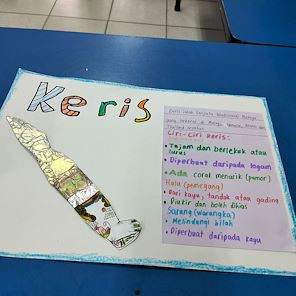 Keris
Keris ialah senjata tradisional Melayu
yang terkenal di Malaysia, Indonesia, Brunei dan
Thailand Selatan.
Ciri-Ciri keris:
• Tajam dan berlekuk atau
lurus
• Diperbuat daripada logam
• Ada corak menarik (pamor)
Hulu (pemegang)
• Dari kayu, tanduk atau gading
• Diukir dan boleh dihias
Sarung (warangka)
• Melindungi bilah
• Diperbuat daripada kayu